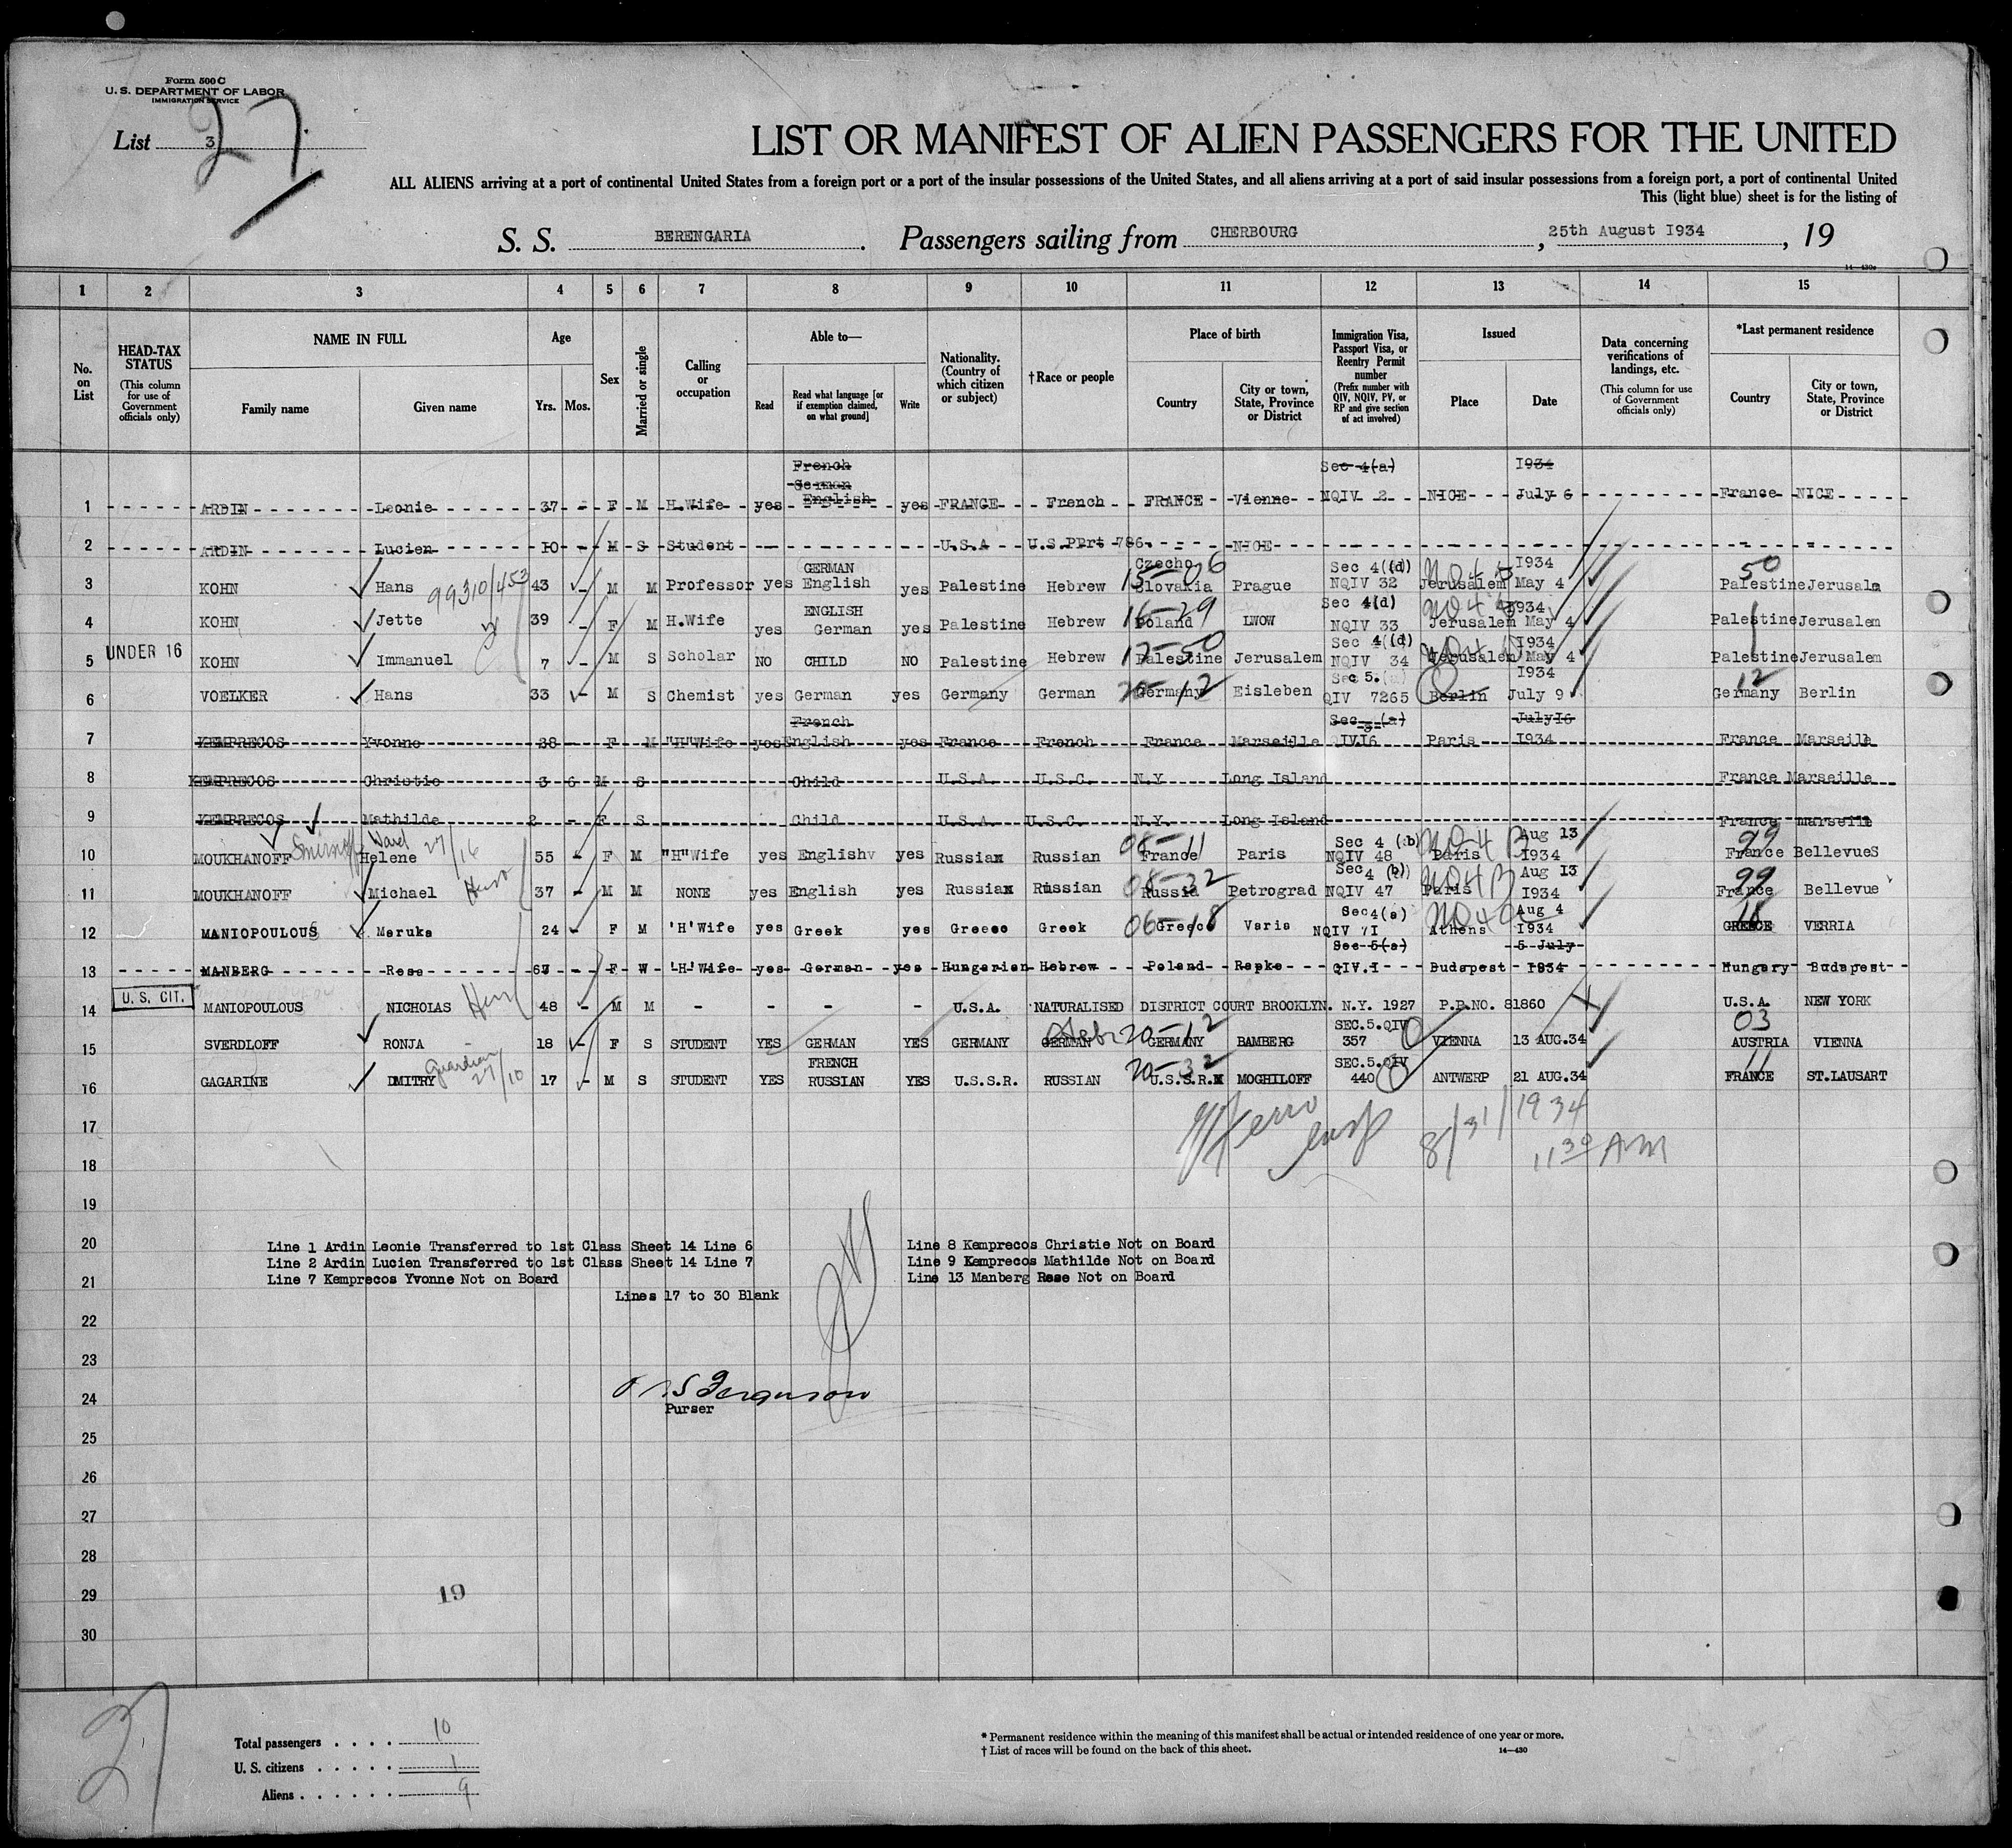 Form 500 C
U. S. DEPARTMENT OF LABOR
IMMIGRATION SERVICE
List 3
27
LIST OR MANIFEST OF ALIEN PASSENGERS FOR THE UNITED
ALL ALIENS arriving at a port of continental United States from a foreign port or a port of the insular possessions of the United States, and all aliens arriving at a port of said insular possessions from a foreign port, a port of continental United
This (light blue) sheet is for the listing of
S. S. BERENGARIA. Passengers sailing from CHERBOURG, 25th August 1934, 19
14—430c
1 2 3 4 5 6 7 8 9 10 11 12 13 14 15
No. on List
HEAD-TAX STATUS (This column for use of Government officials only)
NAME IN FULL Family name Given name
Age Yrs. Mos.
Sex
Married or single
Calling or occupation
Able to— Read Read what language [or if exemption claimed, on what ground] Write
Nationality. (Country of which citizen or subject)
†Race or people
Place of birth Country City or town, State, Province or District
Immigration Visa, Passport Visa, or Reentry Permit number (Prefix number with QIV, NQIV, PV, or RP and give section of act involved)
Issued Place Date
Data concerning verifications of landings, etc. (This column for use of Government officials only)
*Last permanent residence Country City or town, State, Province or District
1 ARDIN Leonie 37 - F M H.Wife yes French German English yes FRANCE French FRANCE Vienne Sec 4(a) NQIV 2 NICE July 6 1934 France NICE
2 ARDIN Lucien 10 - M S Student - - - U.S.A U.S.PPrt 786. - NICE
3 KOHN Hans 99310/453 43 - M M Professor yes GERMAN English yes Palestine Hebrew Czecho Slovakia 15-06 Prague Sec 4(d) NQIV 32 Jerusalem I934 May 4 50 Palestine Jerusalem
4 KOHN Jette 39 - F M H.Wife yes ENGLISH German yes Palestine Hebrew 16-29 Poland LWOW Sec 4(d) NQIV 33 Jerusalem 1934 May 4 Palestine Jerusalem
UNDER 16
5 KOHN Immanuel 7 - M S Scholar NO CHILD NO Palestine Hebrew 17-50 Palestine Jerusalem Sec 4(d) NQIV 34 Jerusalem I934 May 4 Palestine Jerusalem
6 VOELKER Hans 33 - M S Chemist yes German yes Germany German 20-12 Germany Eisleben Sec 5.(a) QIV 7265 Berlin I934 July 9 12 Germany Berlin
7 KEMPRECOS Yvonne 28 - F M "H"Wife yes French English yes France French France Marseille IVI6 Paris July I6 I934 France Marseill
8 KEMPRECOS Christie 3 6 M S Child U.S.A. U.S.C. N.Y Long Island France Marseille
9 KEMPRECOS Mathilde 2 - F S Child U.S.A. U.S.C. N.Y. Long Island France Marseill
10 MOUKHANOFF Helene 27/16 55 - F M "H"Wife yes English yes Russian Russian 08-11 France Paris Sec 4 (b) NQIV 48 NQ4B Paris Aug 13 I934 99 France BellevueS
11 MOUKHANOFF Michael 37 - M M NONE yes English yes Russian Russian 08-32 Russia Petrograd Sec 4 (b) NQIV 47 NQ4B Paris Aug 13 I934 99 France Bellevue
12 MANIOPOULOUS Maruka 24 - F M 'H'Wife yes Greek yes Greece Greek 06-18 Greece Varia Sec4(a) NQIV 7I Athens Aug 4 I934 GREECE VERRIA
13 MANBERG Rose - F W 'H'Wife yes German yes Hungarian Hebrew Poland Repke Sec 5(a) QIV.I Budapest 5 July I934 Hungary Budapest
U. S. CIT.
14 MANIOPOULOUS NICHOLAS 48 - M M - - - - U.S.A. NATURALISED DISTRICT COURT BROOKLYN. N.Y. 1927 P.P.NO. 81860 U.S.A. NEW YORK
15 SVERDLOFF RONJA 18 - F S STUDENT YES GERMAN YES GERMANY GERMAN Heb 20-12 GERMANY BAMBERG SEC.5.QIV 357 VIENNA 13 AUG.34 03 AUSTRIA VIENNA
16 GAGARINE DMITRY Guardian 27/10 17 - M S STUDENT YES FRENCH RUSSIAN YES U.S.S.R. RUSSIAN 20-32 U.S.S.R. MOGHILOFF SEC.5.QIV 440 ANTWERP 21 AUG.34 11 FRANCE ST.LAUSART
17
8/31/1934
11 30 AM
18
19
20
Line 1 Ardin Leonie Transferred to 1st Class Sheet 14 Line 6
Line 2 Ardin Lucien Transferred to 1st Class Sheet 14 Line 7
Line 7 Kemprecos Yvonne Not on Board
Line 8 Kemprecos Christie Not on Board
Line 9 Kemprecos Mathilde Not on Board
Line 13 Manberg Rose Not on Board
21
Lines 17 to 30 Blank
22
23
24
Ferguson
Purser
25
26
27
28
29
19
30
27
Total passengers . . . . 10
U. S. citizens . . . . . 1
Aliens . . . . . . 9
* Permanent residence within the meaning of this manifest shall be actual or intended residence of one year or more.
† List of races will be found on the back of this sheet.
14—430